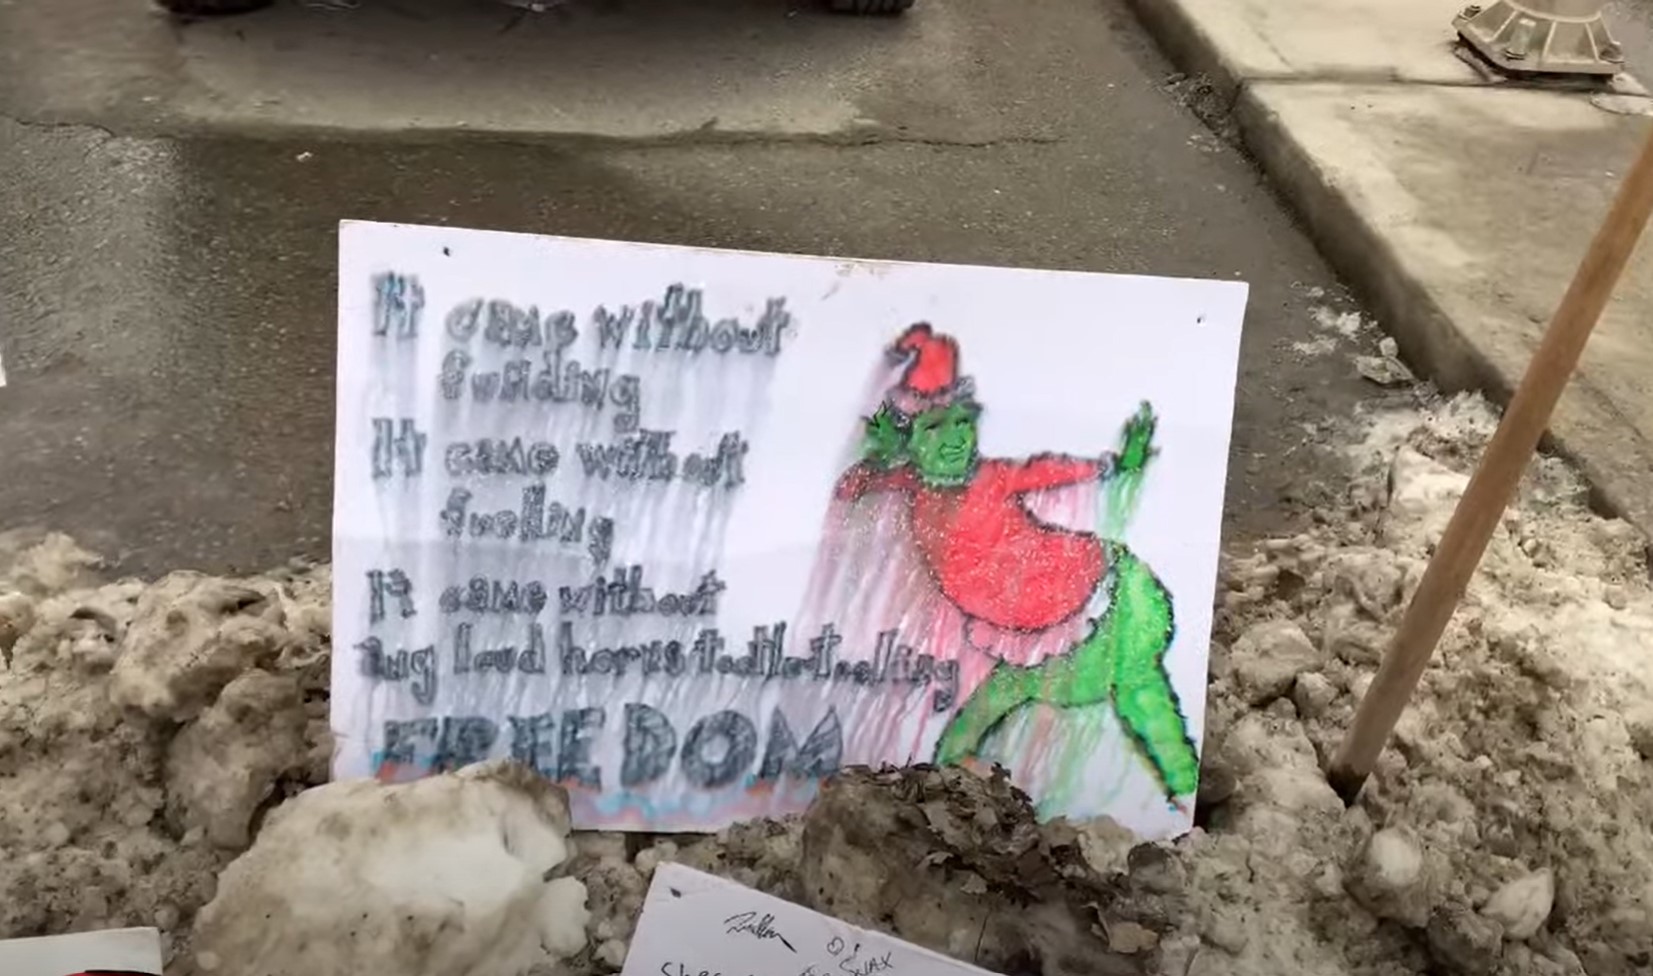 It came without
funding
It came without
fueling
It came without
any loud horns tootle-tooling
FREEDOM